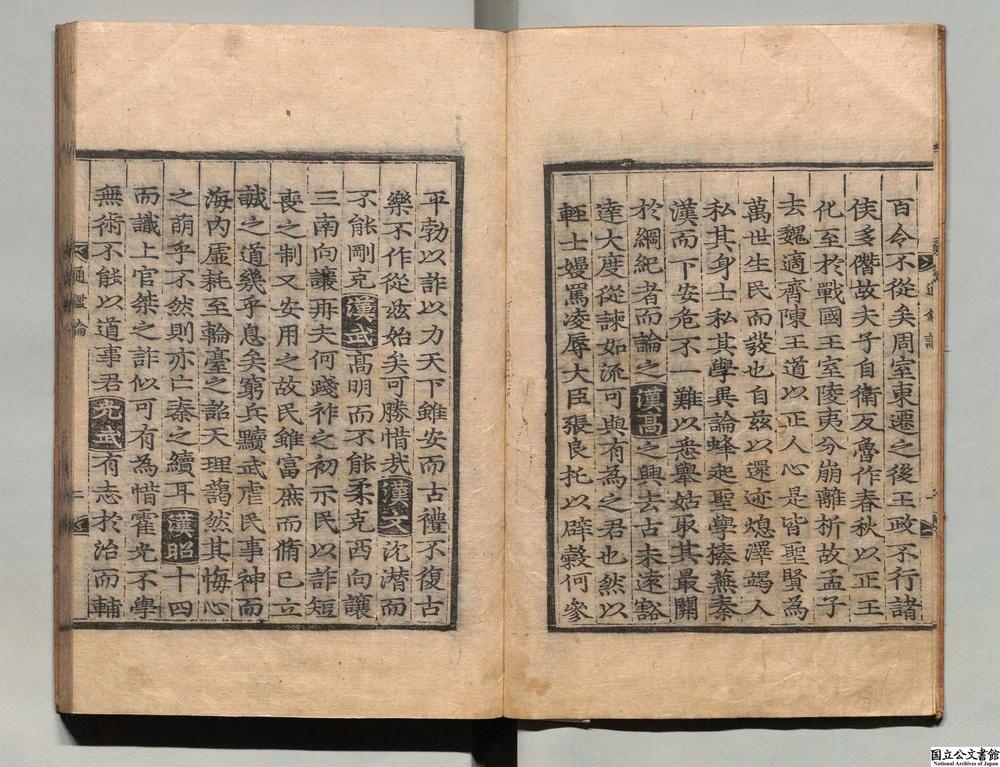 百令不從矣周室東遷之後王政不行諸
侯多僭故夫子自衛反魯作春秋以正王
化至於戰國王室陵夷分崩離析故孟子
去魏適齊陳王道以正人心是皆聖賢為
萬世生民而發也自玆以還迹熄澤竭人
私其身士私其學異論蜂起聖學榛蕪秦
漢而下安危不一難以悉舉姑取其最關
於綱紀者而論之漢高之興去古未遠豁
達大度從諫如流可與有為之君也然以
輕士嫚罵凌辱大臣張良托以辟穀何參
平勃以詐以力天下雖安而古禮不復古
樂不作從玆始矣可勝惜哉漢文沈潜而
不能剛克漢武高明而不能柔克西向讓
三南向讓再夫何踐祚之初示民以詐短
喪之制又安用之故民雖富庶而脩己立
誠之道幾乎息矣窮兵黷武虐民事神而
海內虛耗至輪臺之詔天理藹然其悔心
之萌乎不然則亦亡秦之續耳漢昭十四
而識上官桀之詐似可有為惜霍光不學
無術不能以道事君光武有志於治而輔
通鑑論
一
国立公文書館
National Archives of Japan